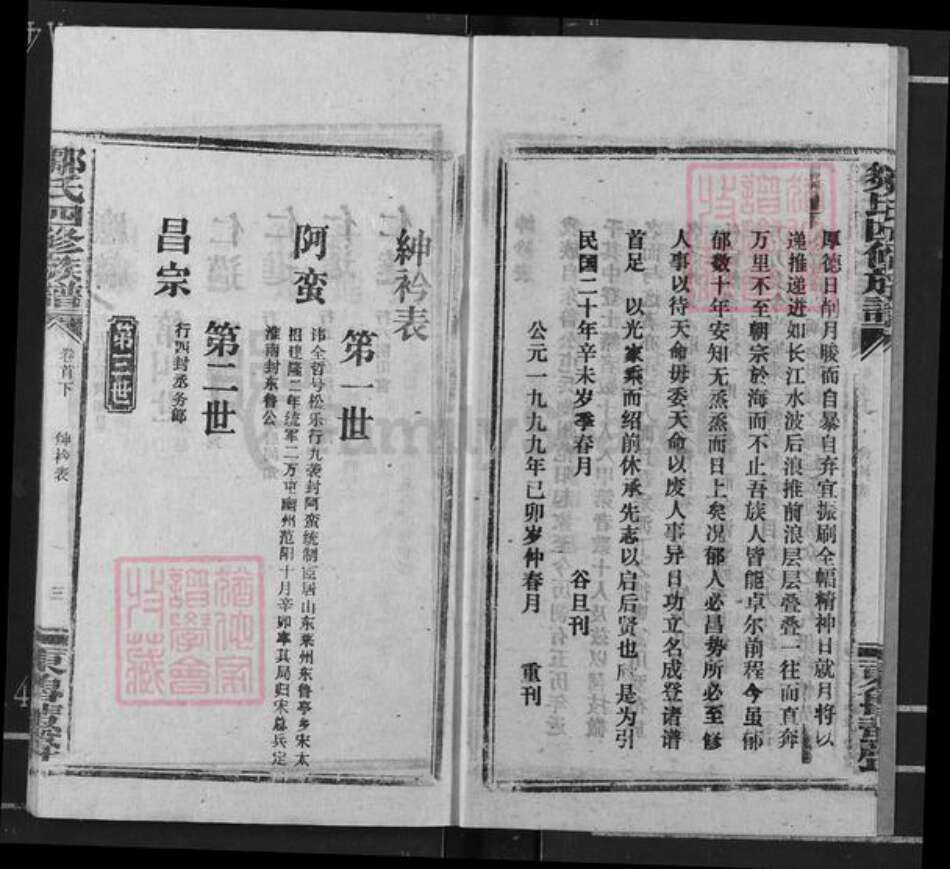 厚德日削月朘而自暴自弃宜振刷全幅精神日就月将以
递推递进如长江水波后浪推前浪层层叠叠一往而直奔
万里不至朝宗於海而不止吾族人皆能卓尔前程今虽郁
郁数十年安知无烝烝而日上矣况郁人必昌势所必至修
人事以待天命毋委天命以废人事异日功立名成登诸谱
首足 以光家乘而绍前休承先志以启后贤也 是为引
民国二十年辛未岁季春月 谷旦刊
公元一九九九年己卯岁仲春月 重刊
邹氏四修族谱
卷首下
绅衿表
三
东鲁堂
紳衿表
第一世
阿蛮
讳全哲号松乐行九袭封阿蛮统制 居山东莱州东鲁亭乡宋太
祖建隆二年统军二万屯幽州范阳十月辛卯率其局归宋总兵定
淮南封东鲁公
第二世
昌宗
行四封丞务郎
第三世